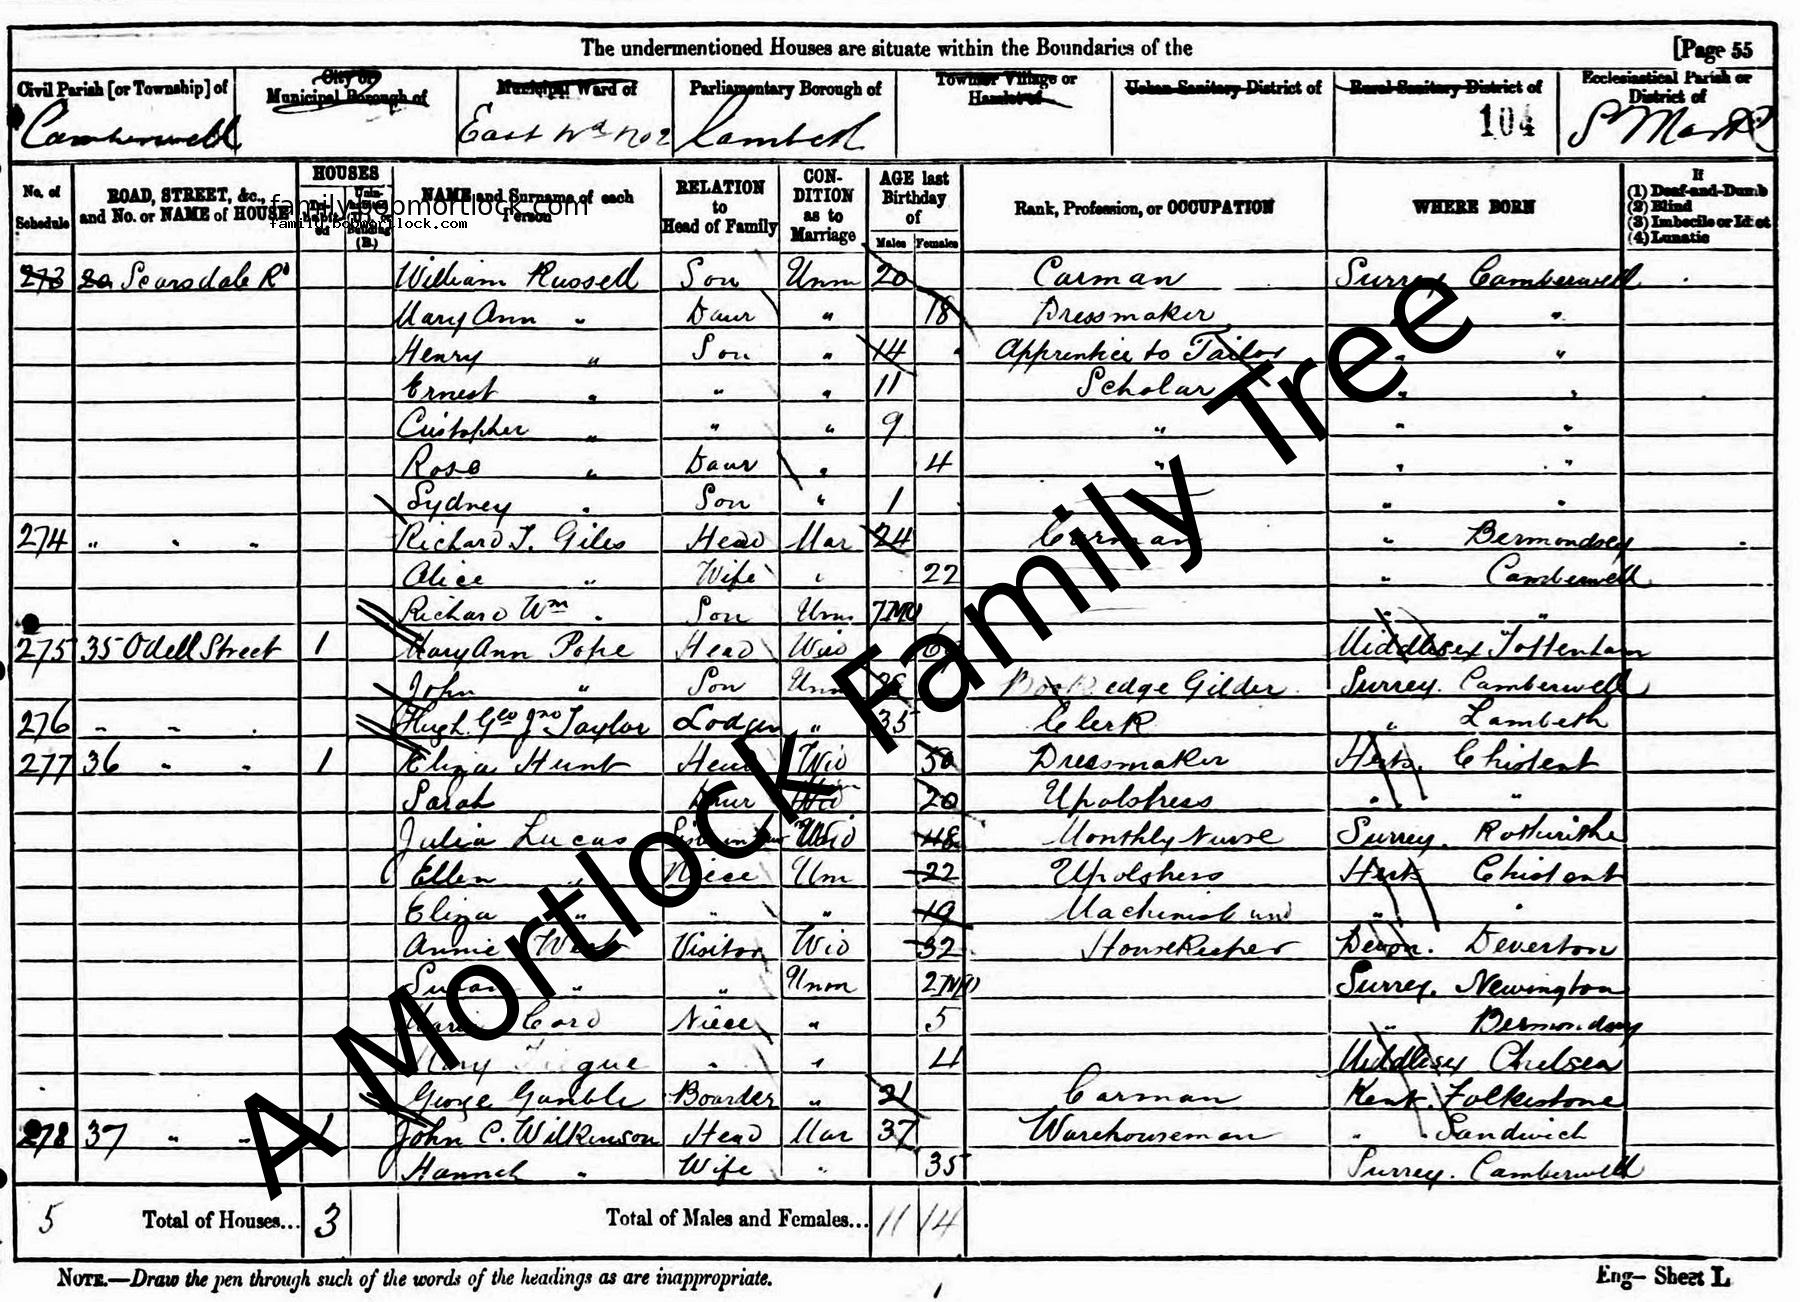 The undermentioned Houses are situate within the Boundaries of the [Page 55
Civil Parish [or Township] of City or Municipal Borough of Municipal Ward of Parliamentary Borough of Town or Village or Hamlet of Urban Sanitary District of Rural Sanitary District of Ecclesiastical Parish or District of
Camberwell East Wd No 2 Lambeth 104 St Mark
No. of Schedule ROAD, STREET, &c., and No. or NAME of HOUSE HOUSES NAME and Surname of each Person RELATION to Head of Family CON-DITION as to Marriage AGE last Birthday of Males Females Rank, Profession, or OCCUPATION WHERE BORN If (1) Deaf-and-Dumb (2) Blind (3) Imbecile or Idiot (4) Lunatic
family.bobmortlock.com
family.bobmortlock.com
273 20 Scarsdale Rd William Russell Son Unm 20 Carman Surrey Camberwell
Mary Ann " Daur " 18 Dressmaker "
Henry " Son " 14 Apprentice to Tailor " "
Ernest " " " 11 Scholar " "
Cristopher " " " 9 " " "
Rose " Daur " 4 " " "
Sydney " Son " 1 " "
274 " " " Richard T. Giles Head Mar 24 Carman " Bermondsey
Alice " Wife " 22 " Camberwell
Richard Wm " Son Unm 7mo " "
275 35 Odell Street 1 Mary Ann Pope Head Wid Middlesex Tottenham
John " Son Unm edge Gilder Surrey. Camberwell
276 " " " Hugh Geo Jno Taylor Lodger " 35 Clerk " Lambeth
277 36 " " 1 Eliza Hunt Head Wid 50 Dressmaker Herts.
Sarah Daur 20 Upolstress " "
Julia Lucas Wid 48 Monthly Nurse Surrey. Rotherithe
Ellen " Niece Um 22 Upolstress Herts
Eliza " " " 19 Machinist " "
Annie Visitor Wid 32 Housekeeper Devon. Deverton
Susan " " Unm 2mo Surrey. Newington
Niece " 5 " Bermondsey
Mary " " 4 Middlesex Chelsea
George Gamble Boarder " 21 Carman Kent. Folkestone
278 37 " " 1 John C. Wilkinson Head Mar 37 Warehouseman " Sandwich
Hannah " Wife " 35 Surrey. Camberwell
5 Total of Houses... 3 Total of Males and Females... 11 14
NOTE.—Draw the pen through such of the words of the headings as are inappropriate. Eng— Sheet L
A Mortlock Family Tree